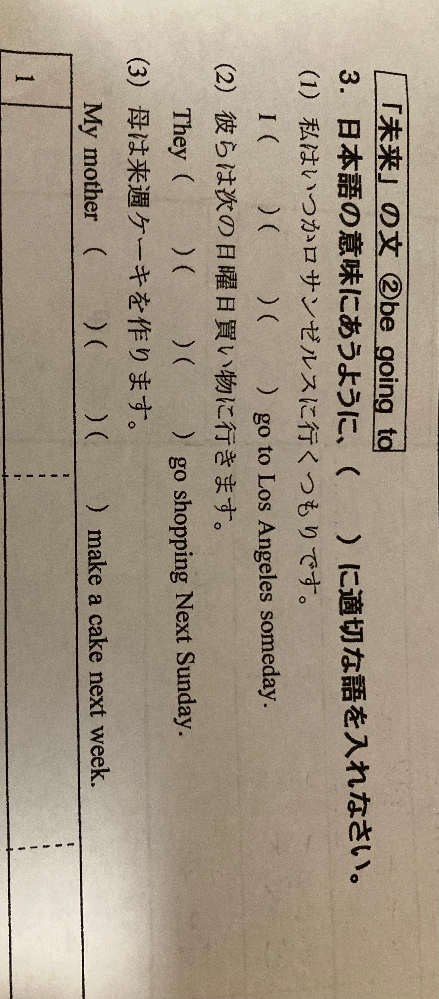 「未来」の文 ②be going to
3. 日本語の意味にあうように、(　　)に適切な語を入れなさい。
(1) 私はいつかロサンゼルスに行くつもりです。
I (　　)(　　)(　　) go to Los Angeles someday.
(2) 彼らは次の日曜日買い物に行きます。
They (　　)(　　)(　　) go shopping Next Sunday.
(3) 母は来週ケーキを作ります。
My mother (　　)(　　)(　　) make a cake next week.
1